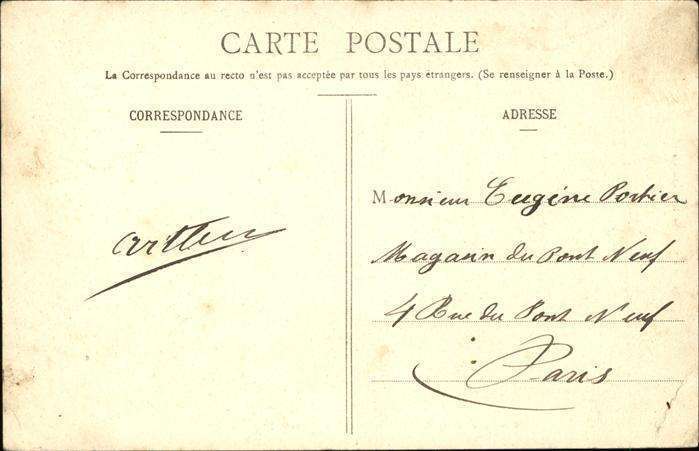 CARTE POSTALE
La Correspondance au recto n'est pas acceptée par tous les pays étrangers. (Se renseigner à la Poste.)
CORRESPONDANCE
ADRESSE
Monsieur Eugène Portier
Magasin du Pont Neuf
4 Rue du Pont Neuf
Paris